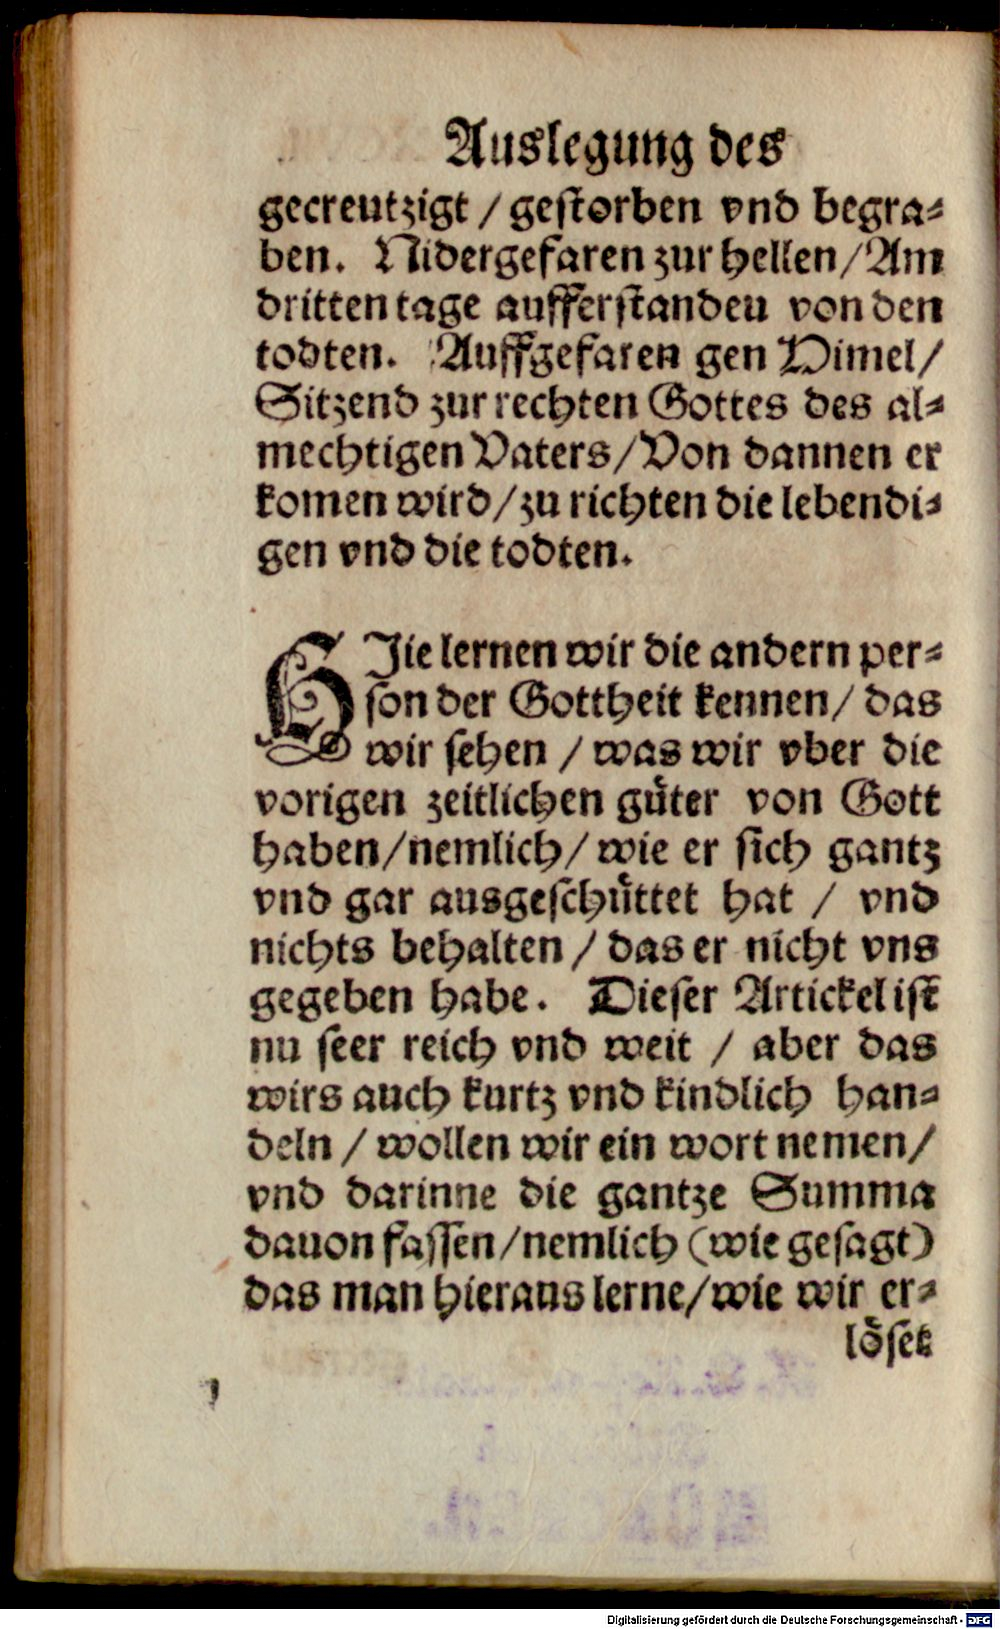 Auslegung des
gecreutzigt / gestorben vnd begra-
ben. Nidergefaren zur hellen / Am
dritten tage aufferstanden von den
todten. Auffgefaren gen Himel /
Sitzend zur rechten Gottes des al-
mechtigen Vaters / Von dannen er
komen wird / zu richten die lebendi-
gen vnd die todten.
HJie lernen wir die andern per-
son der Gottheit kennen / das
wir sehen / was wir vber die
vorigen zeitlichen guͤter von Gott
haben / nemlich / wie er sich gantz
vnd gar ausgeschuͤttet hat / vnd
nichts behalten / das er nicht vns
gegeben habe. Dieser Artickel ist
nu seer reich vnd weit / aber das
wirs auch kurtz vnd kindlich han-
deln / wollen wir ein wort nemen /
vnd darinne die gantze Summa
dauon fassen / nemlich (wie gesagt)
das man hieraus lerne / wie wir er-
loͤset
Digitalisierung gefördert durch die Deutsche Forschungsgemeinschaft - DFG